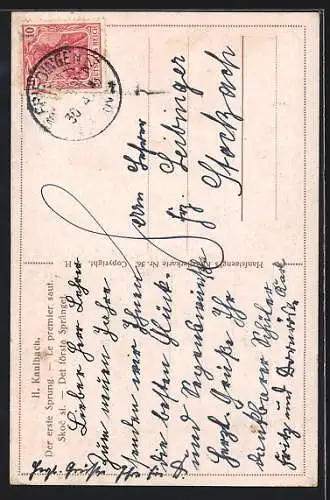 H. Kaulbach.
Der erste Sprung. — Le premier saut.
Skoč si. — Det förste Språnget.
Hanfstaengl's Künstlerkarte Nr. 36. Copyright.
10
DEUTSCHES REICH
30
Herrn Lehrer
Leibinger
Stockach
Lieber Herr Lehrer
Zum neuen Jahre
senden wir Ihnen
die besten Glück-
und Segenswünsche
Herzl. Grüße Ihr
dankbarer Schüler
Fritz und
Herzl. Grüße